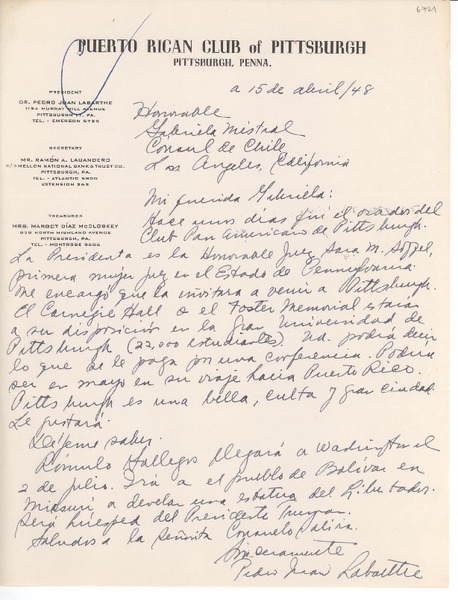 6921
PUERTO RICAN CLUB of PITTSBURGH
PITTSBURGH, PENNA.
PRESIDENT
DR. PEDRO JUAN LABARTHE
1154 MURRAY HILL AVENUE
PITTSBURGH 17, PA.
TEL. - EMERSON 5735
SECRETARY
MR. RAMÓN A. LAUANDERO
MELLON NATIONAL BANK & TRUST CO.
PITTSBURGH, PA.
TEL. - ATLANTIC 5800
EXTENSION 365
TREASURER
MRS. MARGOT DÍAZ McCLOSKEY
NORTH HIGHLAND AVENUE
PITTSBURGH, PA.
TEL. - MONTROSE
a 15 de abril/48
Honorable
Gabriela Mistral
Consul de Chile
Los Angeles, California
Mi querida Gabriela:
Hace unos dias fui el orador del
Club Pan Americano de Pittsburgh.
La Presidenta es la Honorable Juez Sara M. Soffel
primera mujer juez en el Estado de Pennsylvania.
Me encargó que la invitara a venir a Pittsburgh.
El Carnegie Hall o el Foster Memorial estará
a su disposición en la gran Universidad de
Pittsburgh (22,000 estudiantes). Ud. podría decir
lo que se le paga por una conferencia. Podría
ser en mayo en su viaje hacia Puerto Rico.
Pittsburgh es una bella, culta y gran ciudad.
Le gustará.
Déjeme saber.
Rómulo Gallegos llegará a Washington el
2 de julio. Irá a el pueblo de Bolívar en
Missuri a develar una estatua del Libertador.
Será huésped del Presidente Truman.
Saludos a la Señorita Consuelo Saliva.
Sinceramente
Pedro Juan Labarthe